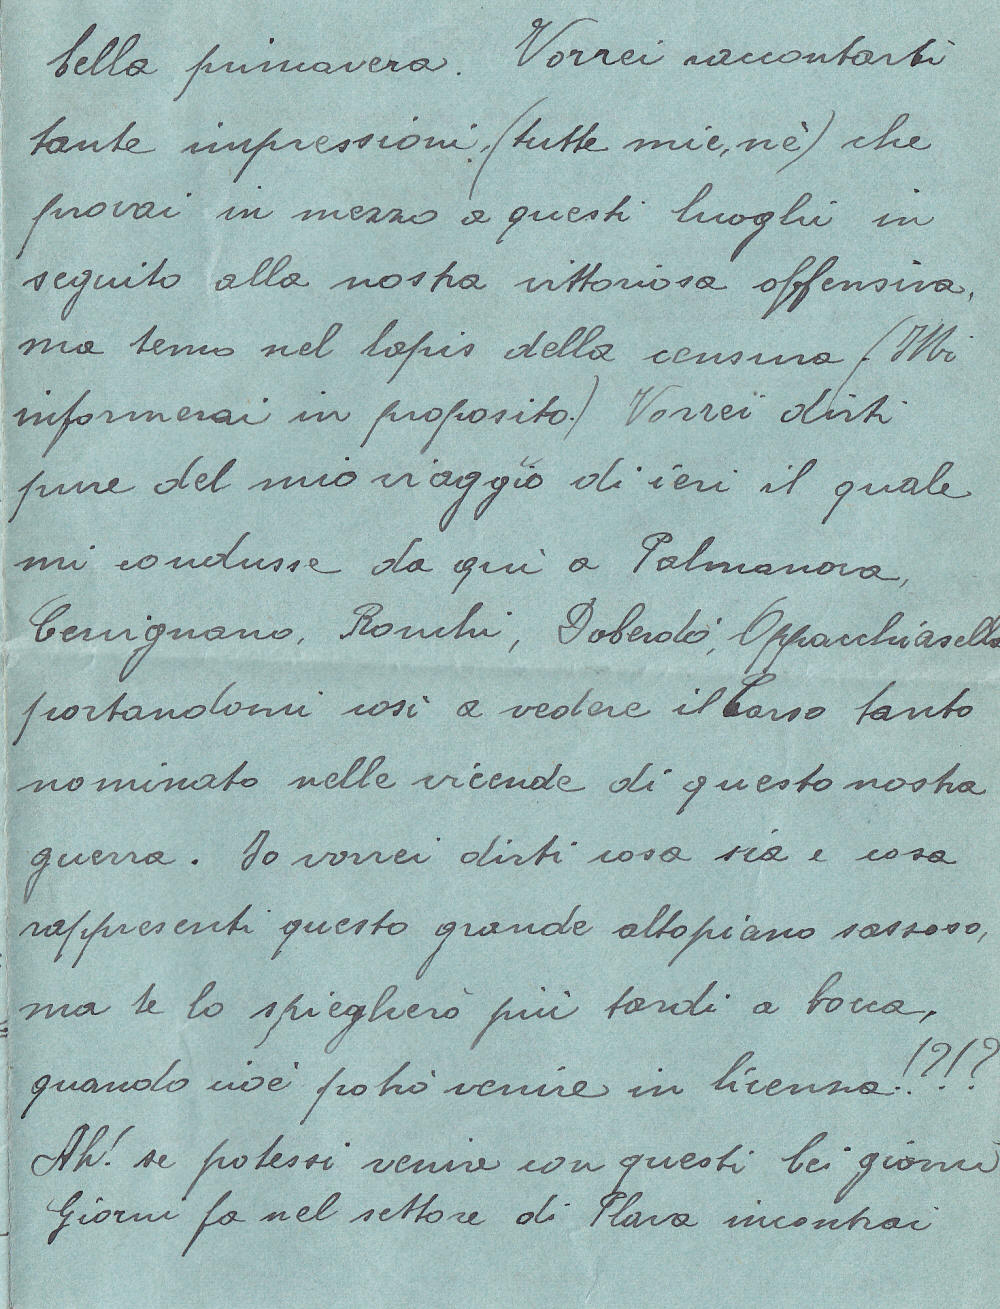 bella primavera. Vorrei raccontarti
tante impressioni, (tutte mie, nè) che
provai in mezzo a questi luoghi in
seguito alla nostra vittoriosa offensiva,
ma temo nel lapis della censura (Mi
informerai in proposito.) Vorrei dirti
pure del mio viaggio di ieri il quale
mi condusse da quì a Palmanova,
Cervignano, Ronchi, Doberdò, Oppacchiasella
portandomi così a vedere il Carso tanto
nominato nelle vicende di questa nostra
guerra. Io vorrei dirti cosa sia e cosa
rappresenti questo grande altopiano sassoso,
ma te lo spiegherò più tardi a bocca,
quando cioè potrò venire in licenza!?!?
Ah! se potessi venire con questi bei giorni
Giorni fa nel settore di Plava incontrai